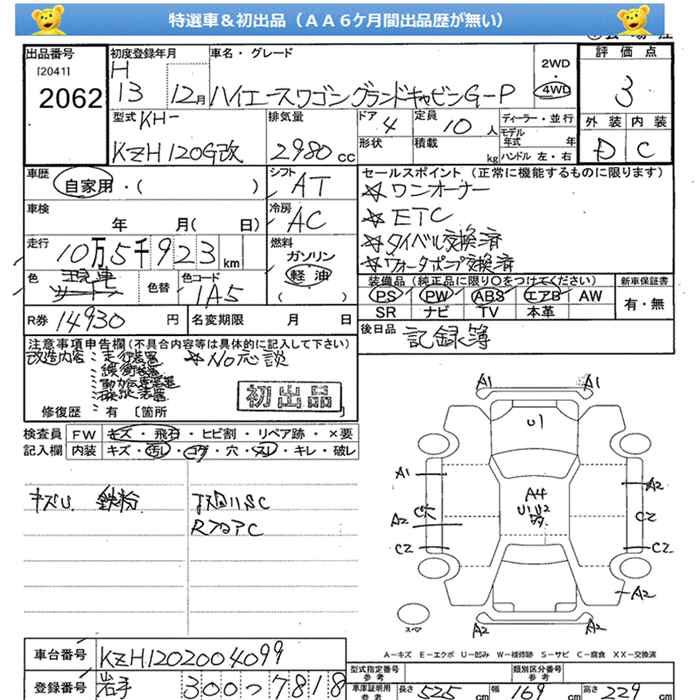 特選車＆初出品（ＡＡ６ケ月間出品歴が無い）
出品番号 初度登録年月 車名・グレード 2WD 評価点
[2041] H
2062 13 12月 ハイエースワゴン グランドキャビンG-P 4WD 3
外装 内装
型式 KH- 排気量 ドア 4 定員 10 人 ディーラー・並行
モデル年式 年 D C
KZH120G改 2980 cc 形状 積載 kg ハンドル 左・右
車歴 自家用・( ) シフト AT セールスポイント（正常に機能するものに限ります）
☆ワンオーナー
車検 年 月( 日) 冷房 AC ☆ETC
☆タイベル交換済
走行 10万5千923 km 燃料 ガソリン ☆ウォーターポンプ交換済
軽油
( )
色 色替 色コード 1A5 装備品（純正品に限り○をつけてください） 新車保証書
PS PW ABS エアB AW 有・無
SR ナビ TV 本革
R券 14930 円 名変期限 月 日 後日品 記録簿
注意事項申告欄(不具合内容等は具体的に記入して下さい)
改造内容：走行装置 ☆No応談
：緩衝装置
初出品
修復歴：有〔箇所
検査員 FW キズ・飛石・ヒビ割・リペア跡・×要
記入欄 内装 キズ・汚レ・コゲ・穴・スレ・キレ・破レ
キズU 鉄粉
A1 A1
U1
A1 A2
A4
U1 U2
A2 C2
C2 C2
A2
A2 A2
A－キズ E－エクボ U－凹み W－補修跡 S－サビ C－腐食 XX－交換済
車台番号 KZH1202004099
型式指定番号 参考 類別区分番号 参考
登録番号 岩手 300つ7818
車庫証明用 参考 長さ 525 cm 幅 169 cm 高さ 229 cm